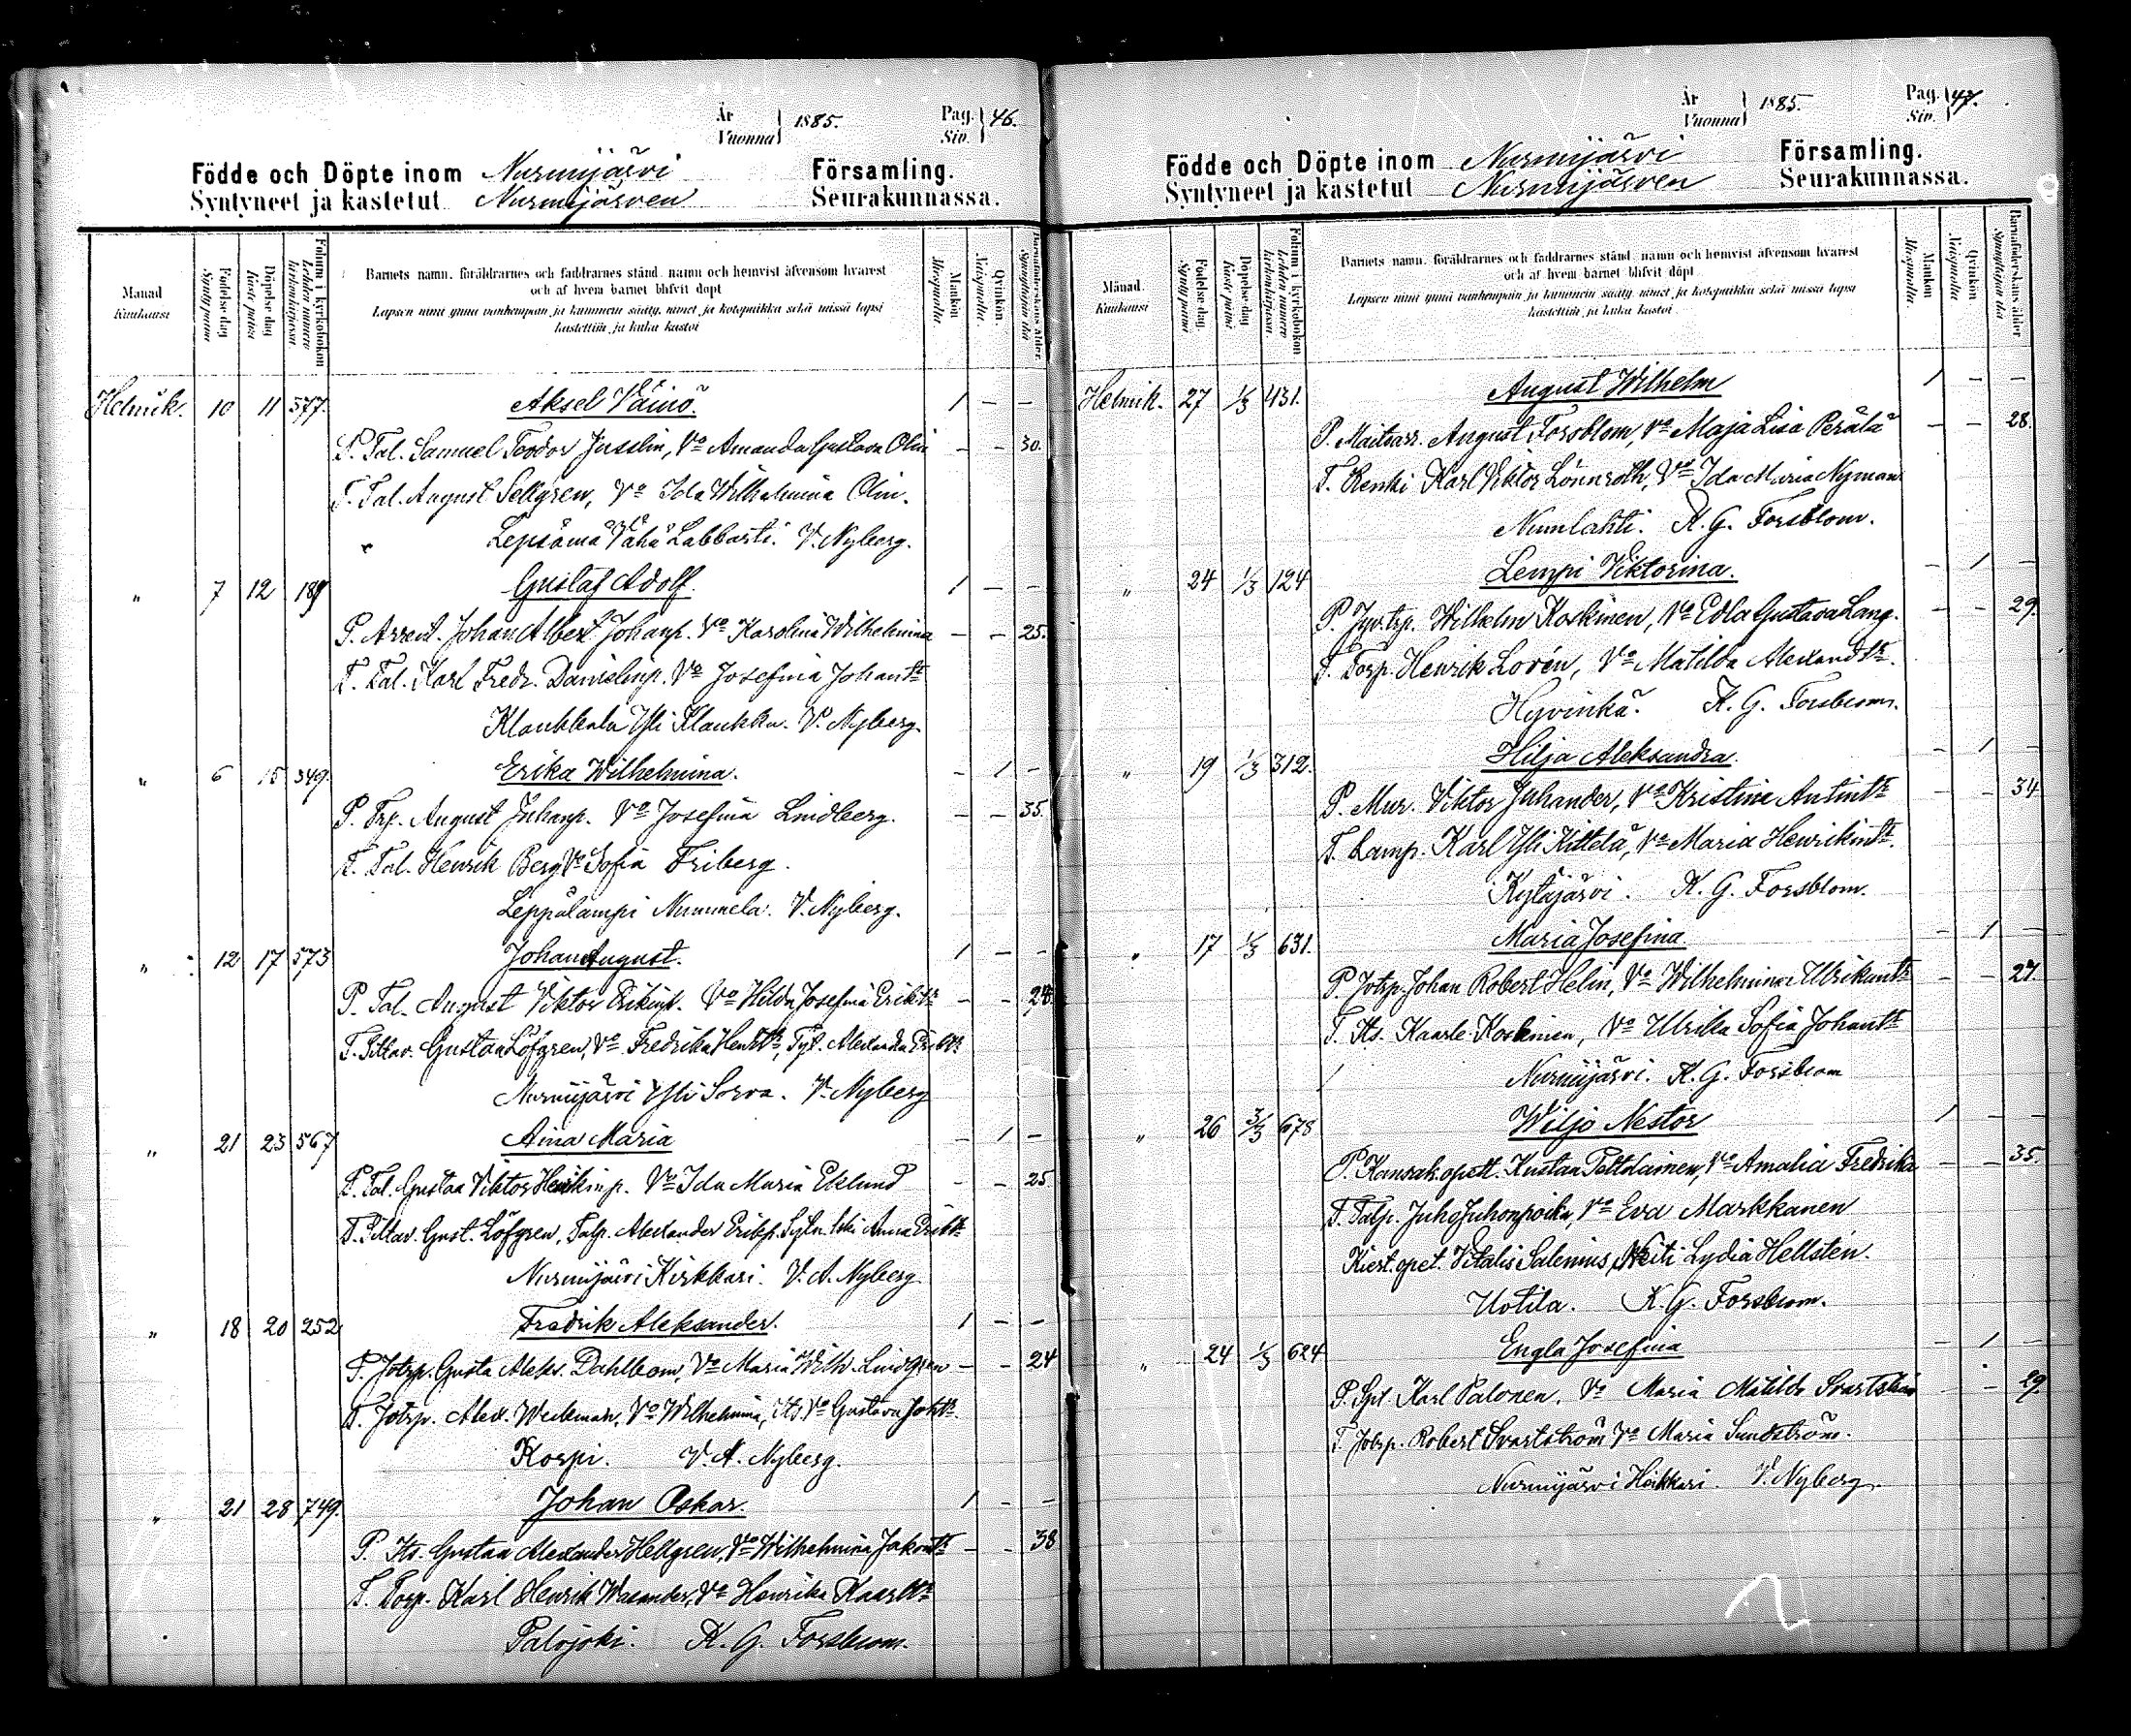 År Vuonna } 1885. Pag. Siv. } 46.
Födde och Döpte inom Nurmijärvi Församling.
Syntyneet ja kastetut Nurmijärven Seurakunnassa.
Månad Kuukausi
Födelse-dag Syntypäivä
Döpelse-dag Kaste-päivä
Folium i kyrkoboken Lehden numero kirkonkirjassa
Barnets namn, föräldrarnes och faddrarnes stånd, namn och hemvist äfvensom hvarest
och af hvem barnet blifvit döpt
Lapsen nimi ynnä vanhempain ja kummein sääty, nimet ja kotopaikka sekä missä lapsi
kastettiin ja kuka kastoi
Mankön Miespuolia.
Qvinkön. Naispuolia.
Barnaföderskans ålder. Synnyttäjän ikä
Helmik. 10 11 577. Aksel Väinö. 1 – –
P. Tal. Samuel Teodor Jusslin, Vo Amanda Gustava Olin – – 30.
T. Tal. August Sellgren, Vo Ida Wilhelmina Olin.
Lepsämä Vähä Labbarti. V. Nyberg.
" 7 12 189 Gustaf Adolf. 1 – –
P. Arent. Johan Albert Johanp. Vo Karolina Wilhelmina – – 25.
T. Tal. Karl Fredr. Danielinp. Vo Josefina Johantr
Klaukkala Yli Klaukka. V. Nyberg.
" 6 15 349. Erika Wilhelmina. – 1 –
P. Trp. August Juhanp. Vo Josefina Lindberg. – – 35.
T. Tal. Henrik Berg Vo Sofia Friberg.
Leppälampi Nummela. V. Nyberg.
" 12 17 573 Johan August. 1 – –
P. Tal. August Viktor Erikinp. Vo Hilda Josefina Eriktr – – 28.
T. Tillav. Gustaa Löfgren, Vo Fredrika Henktr, Tyt. Alexandra Eriktr
Nurmijärvi Yli Sorva. V. Nyberg
" 21 23 567 Aina Maria – 1 –
P. Tal. Gustaa Viktor Henrikinp. Vo Ida Maria Eklund – – 25
T. Tillav. Gust. Löfgren, Talp. Alexander Erikp. Anna Eriktr
Nurmijärvi Kirkkari. V. A. Nyberg.
" 18 20 252 Fredrik Aleksander. 1 – –
P. Jotrp. Gusta Aleks. Dahlbom, Vo Maria Wilh. Lindgren – – 24
T. Jotrp. Alex. Weckman, Vo Wilhelmina, Its. Vo Gustava Johtr.
Korpi. V. A. Nyberg.
" 21 28 749. Johan Oskar. 1 – –
P. Its. Gustaa Alexander Hellgren, Vo Wilhelmina Jakontr – – 38
T. Torp. Karl Henrik Walander, Vo Henrika Kaarltr
Palojoki. K. G. Forsblom.
År Vuonna } 1885. Pag. Siv. } 47.
Födde och Döpte inom Nurmijärvi Församling.
Syntyneet ja kastetut Nurmijärven Seurakunnassa.
Månad. Kuukausi
Födelse-dag Syntypäivä
Döpelse-dag Kaste-päivä
Folium i kyrkoboken Lehden numero kirkonkirjassa
Barnets namn, föräldrarnes och faddrarnes stånd, namn och hemvist äfvensom hvarest
och af hvem barnet blifvit döpt
Lapsen nimi ynnä vanhempain ja kummein sääty, nimet ja kotopaikka sekä missä lapsi
kastettiin ja kuka kastoi
Mankön Miespuolia.
Qvinkön Naispuolia.
Barnaföderskans ålder Synnyttäjän ikä
Helmik. 27 1/3 431. August Wilhelm 1 – –
P. Maitoarr. August Forsblom, Vo Maja Lisa Perälä – – 28.
T. Renki Karl Viktor Lönnroth, Vo Ida Maria Nyman
Numlahti. K. G. Forsblom.
" 24 1/3 124 Lempi Viktorina. – 1 –
P. Jyv. trp. Wilhelm Koskinen, Vo Edla Gustava Lang. – – 29.
T. Torp. Henrik Lovén, Vo Matilda Alexandtr.
Hyvinkä. K. G. Forsblom.
" 19 1/3 312. Hilja Aleksandra. – 1 –
P. Mur. Viktor Juhander, Vo Kristina Antintr – – 34
T. Lamp. Karl Yli Kittelä, Vo Maria Henrikintr.
Kytäjärvi. K. G. Forsblom.
" 17 1/3 631. Maria Josefina. – 1 –
P. Jotrp. Johan Robert Helin, Vo Wilhelmina Ulrikuntr – – 27.
T. Its. Kaarle Koskinen, Vo Ulrika Sofia Johantr
Nurmijärvi. K. G. Forsblom
" 26 3/3 678 Wiljo Nestor 1 – –
P. Kansak. opett. Kustaa Tattolainen, Vo Amalia Fredrika – – 35.
T. Talp. Juho Juhonpoika, Vo Eva Markkanen
Kiert. opet. Vitalis Salenius, Neiti Lydia Hellstén.
Uotila. K. G. Forsblom.
" 24 1/3 624 Engla Josefina – 1 –
P. Spt. Karl Palonen, Vo Maria Matilda – – 29.
T. Jotrp. Robert Svartström Vo Maria Sundström.
Nurmijärvi Heikkari. V. Nyberg.